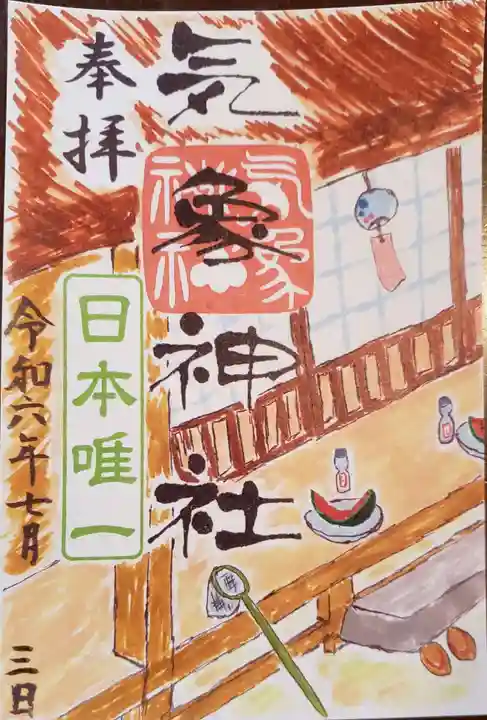 奉拝
気象神社
気象
神社
日本唯一
令和六年七月
三日